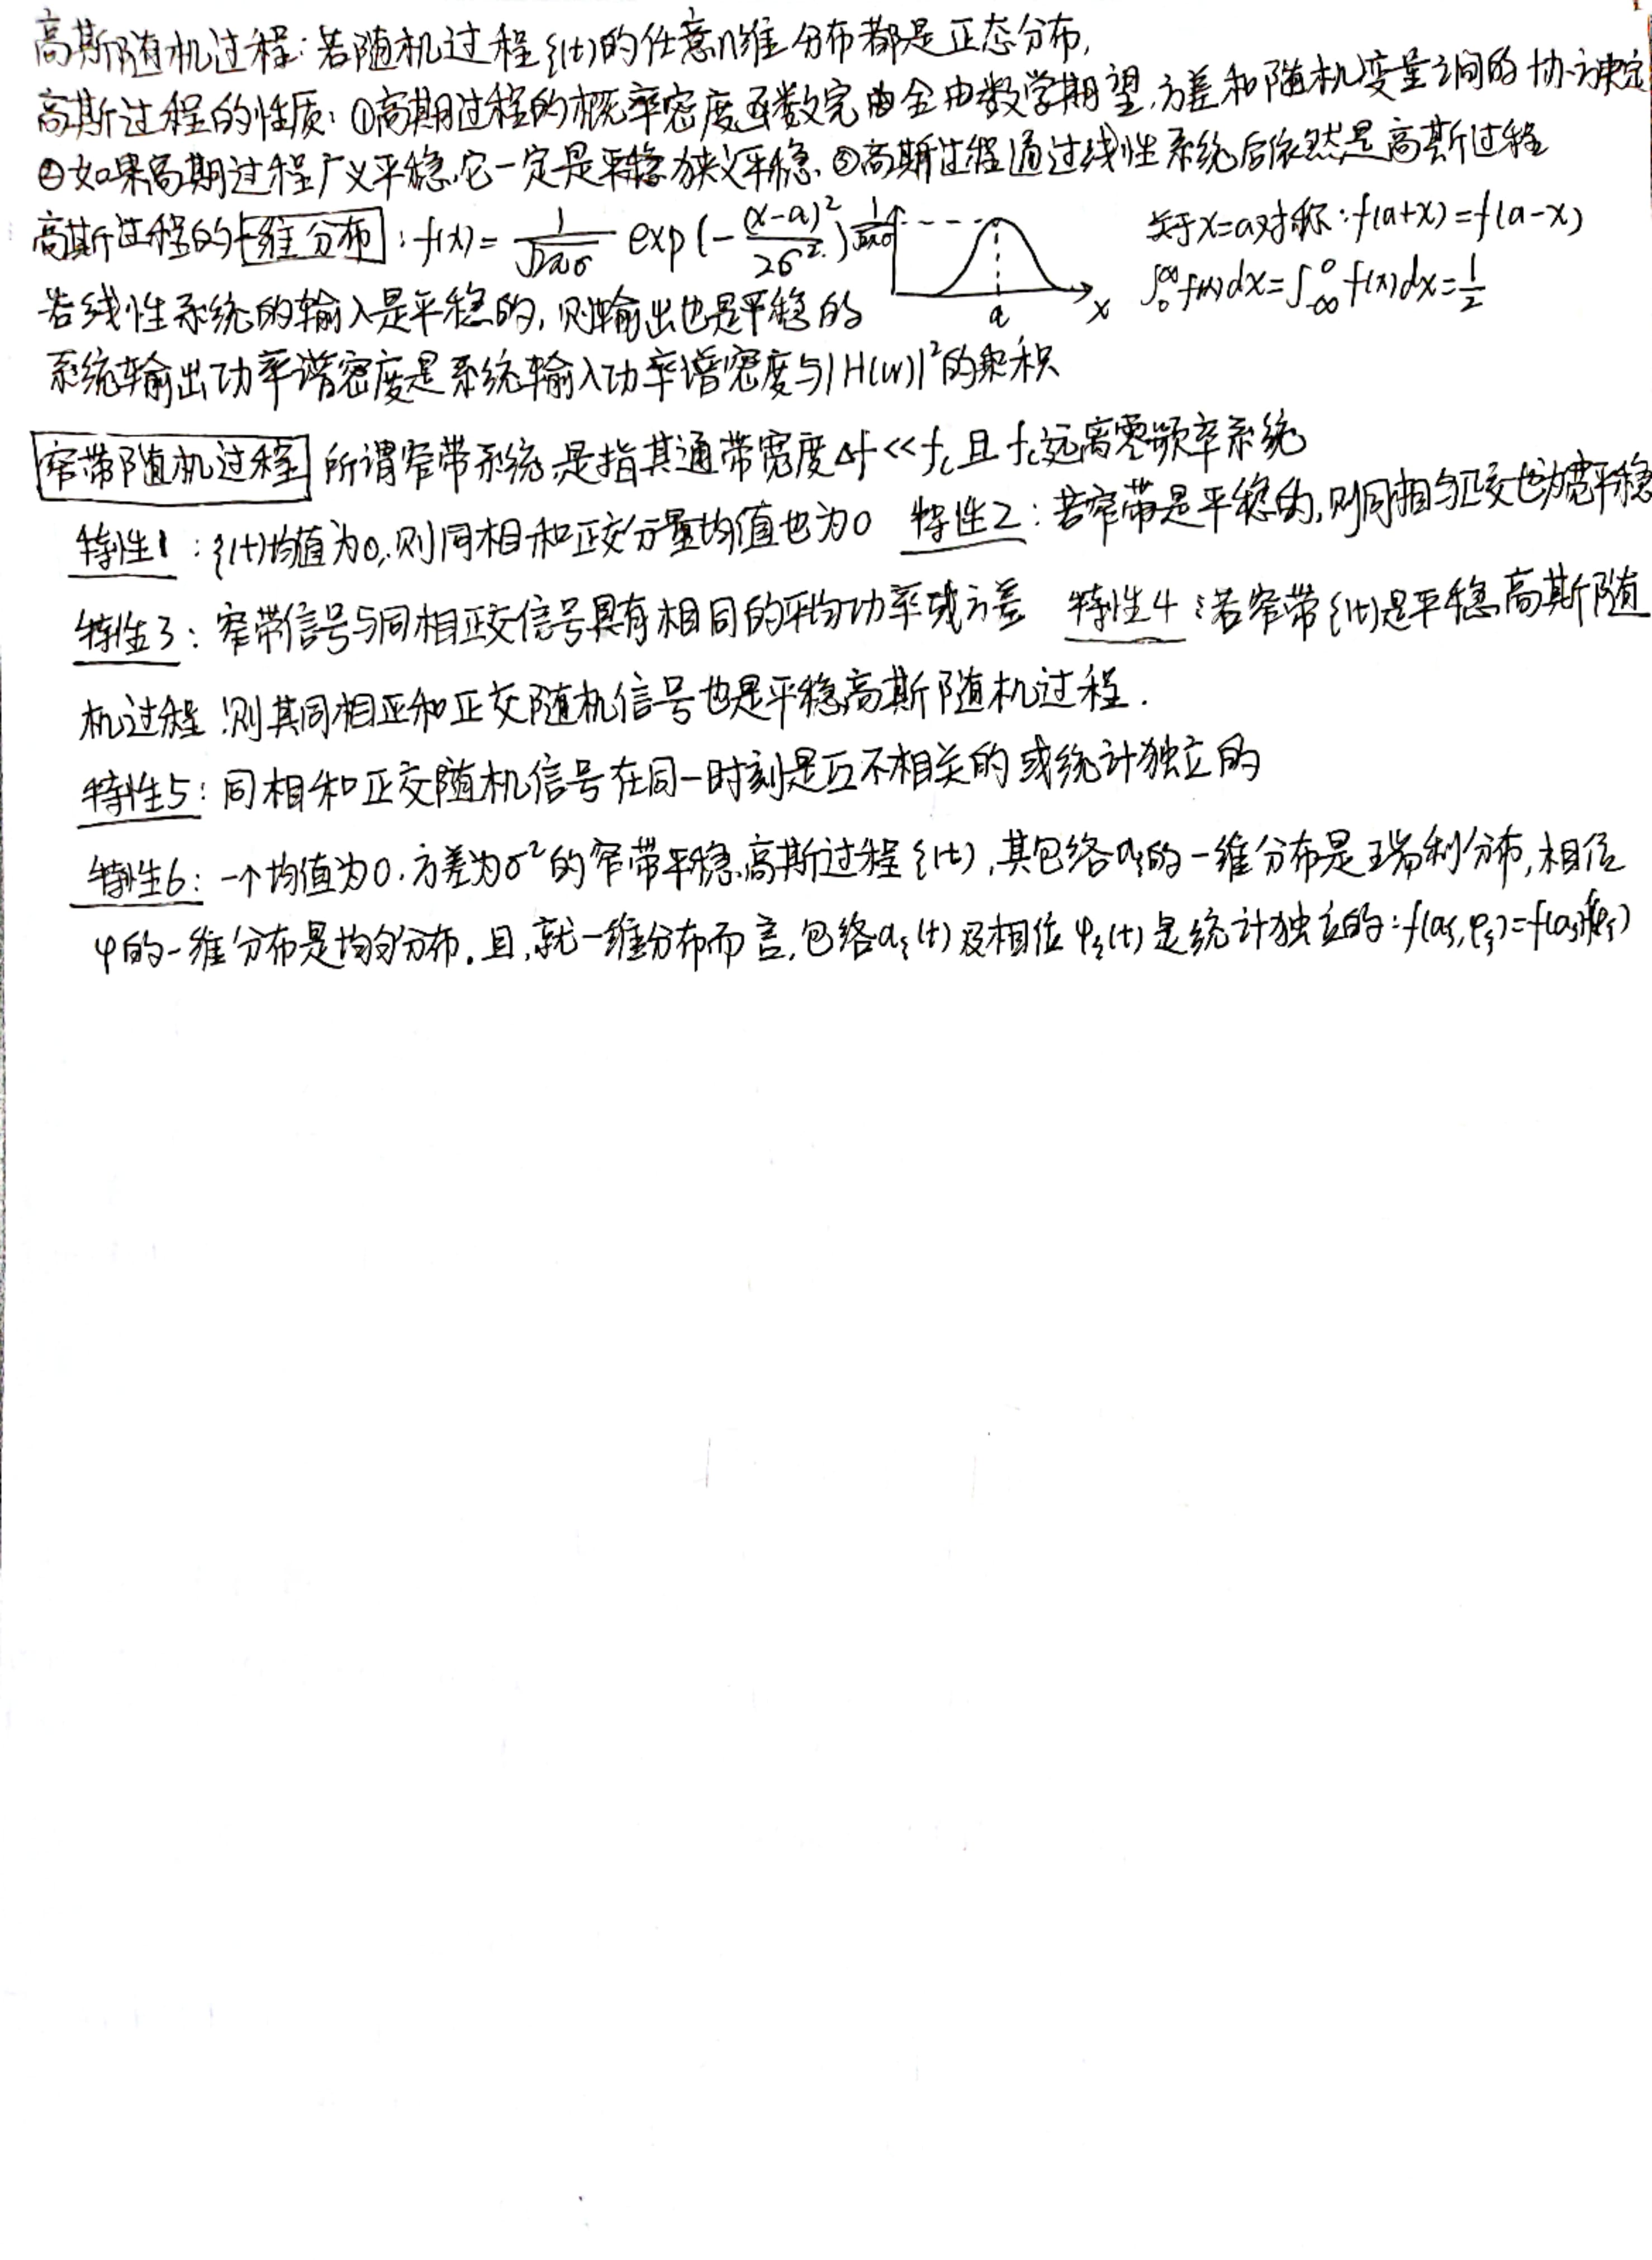 高斯随机过程：若随机过程ξ(t)的任意n维分布都是正态分布,
高斯过程的性质：①高斯过程的概率密度函数完全由数学期望、方差和随机变量之间的协方决定
②如果高斯过程广义平稳,它一定是狭义平稳.③高斯过程通过线性系统后依然是高斯过程
高斯过程的一维分布：f(x)=1/(√2πσ) exp(-(x-a)²/2σ²) 1/(√2πσ) a x 关于x=a对称：f(a+x)=f(a-x)
若线性系统的输入是平稳的,则输出也是平稳的 ∫₀^∞ f(x)dx=∫_{-∞}^0 f(x)dx=1/2
系统输出功率谱密度是系统输入功率谱密度与|H(w)|²的乘积
窄带随机过程 所谓窄带系统,是指其通带宽度Δf<<fc且fc远离零频率系统
特性1：ξ(t)均值为0,则同相和正交分量均值也为0 特性2：若窄带是平稳的,则同相与正交也为宽平稳
特性3：窄带信号与同相正交信号具有相同的平均功率或方差 特性4：若窄带ξ(t)是平稳高斯随
机过程,则其同相正和正交随机信号也是平稳高斯随机过程.
特性5：同相和正交随机信号在同一时刻是互不相关的或统计独立的
特性6：一个均值为0.方差为σ²的窄带平稳高斯过程ξ(t),其包络aξ的一维分布是瑞利分布,相位
φ的一维分布是均匀分布.且,就一维分布而言,包络aξ(t)及相位φξ(t)是统计独立的：f(aξ,φξ)=f(aξ)f(φξ)